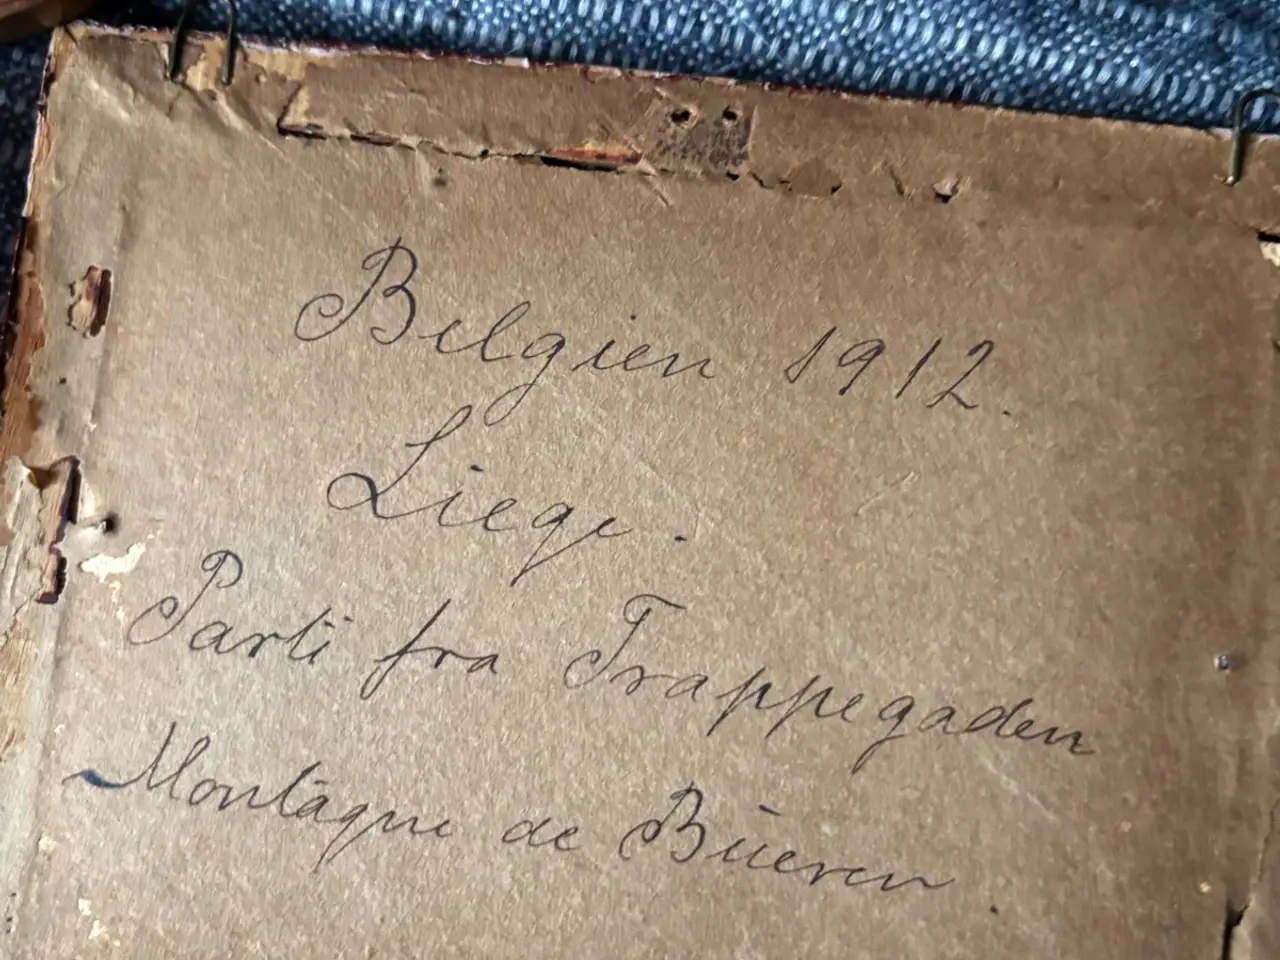 Belgien 1912.
Liege.
Parti fra Trappegaden
Montagne de Büeren.